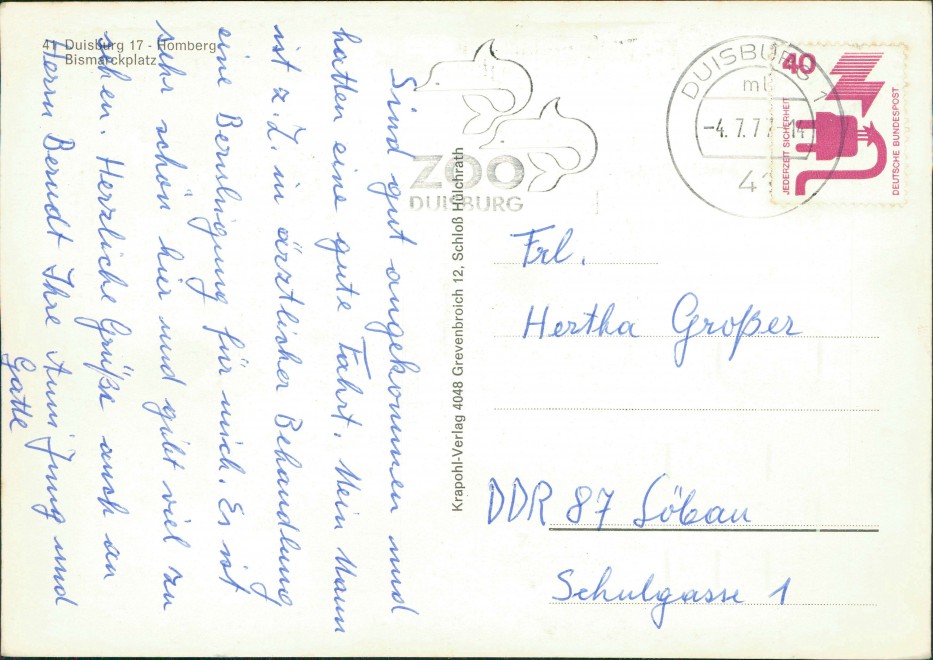 41 Duisburg 17 - Homberg
Bismarckplatz
Sind gut angekommen und
hatten eine gute Fahrt. Mein Mann
ist z.Z. in ärztlicher Behandlung
eine Beruhigung für mich. Es ist
sehr schön hier und gibt viel zu
sehen. Herzliche Grüße auch an
Herrn Berndt Ihre Anni Jung und
Gatte
Krapohl-Verlag 4048 Grevenbroich 12, Schloß Hülchrath
ZOO
DUISBURG
DUISBURG 1
ml
-4.7.77-14
41
40
JEDERZEIT SICHERHEIT
DEUTSCHE BUNDESPOST
Frl.
Hertha Großer
DDR 87 Löbau
Schulgasse 1